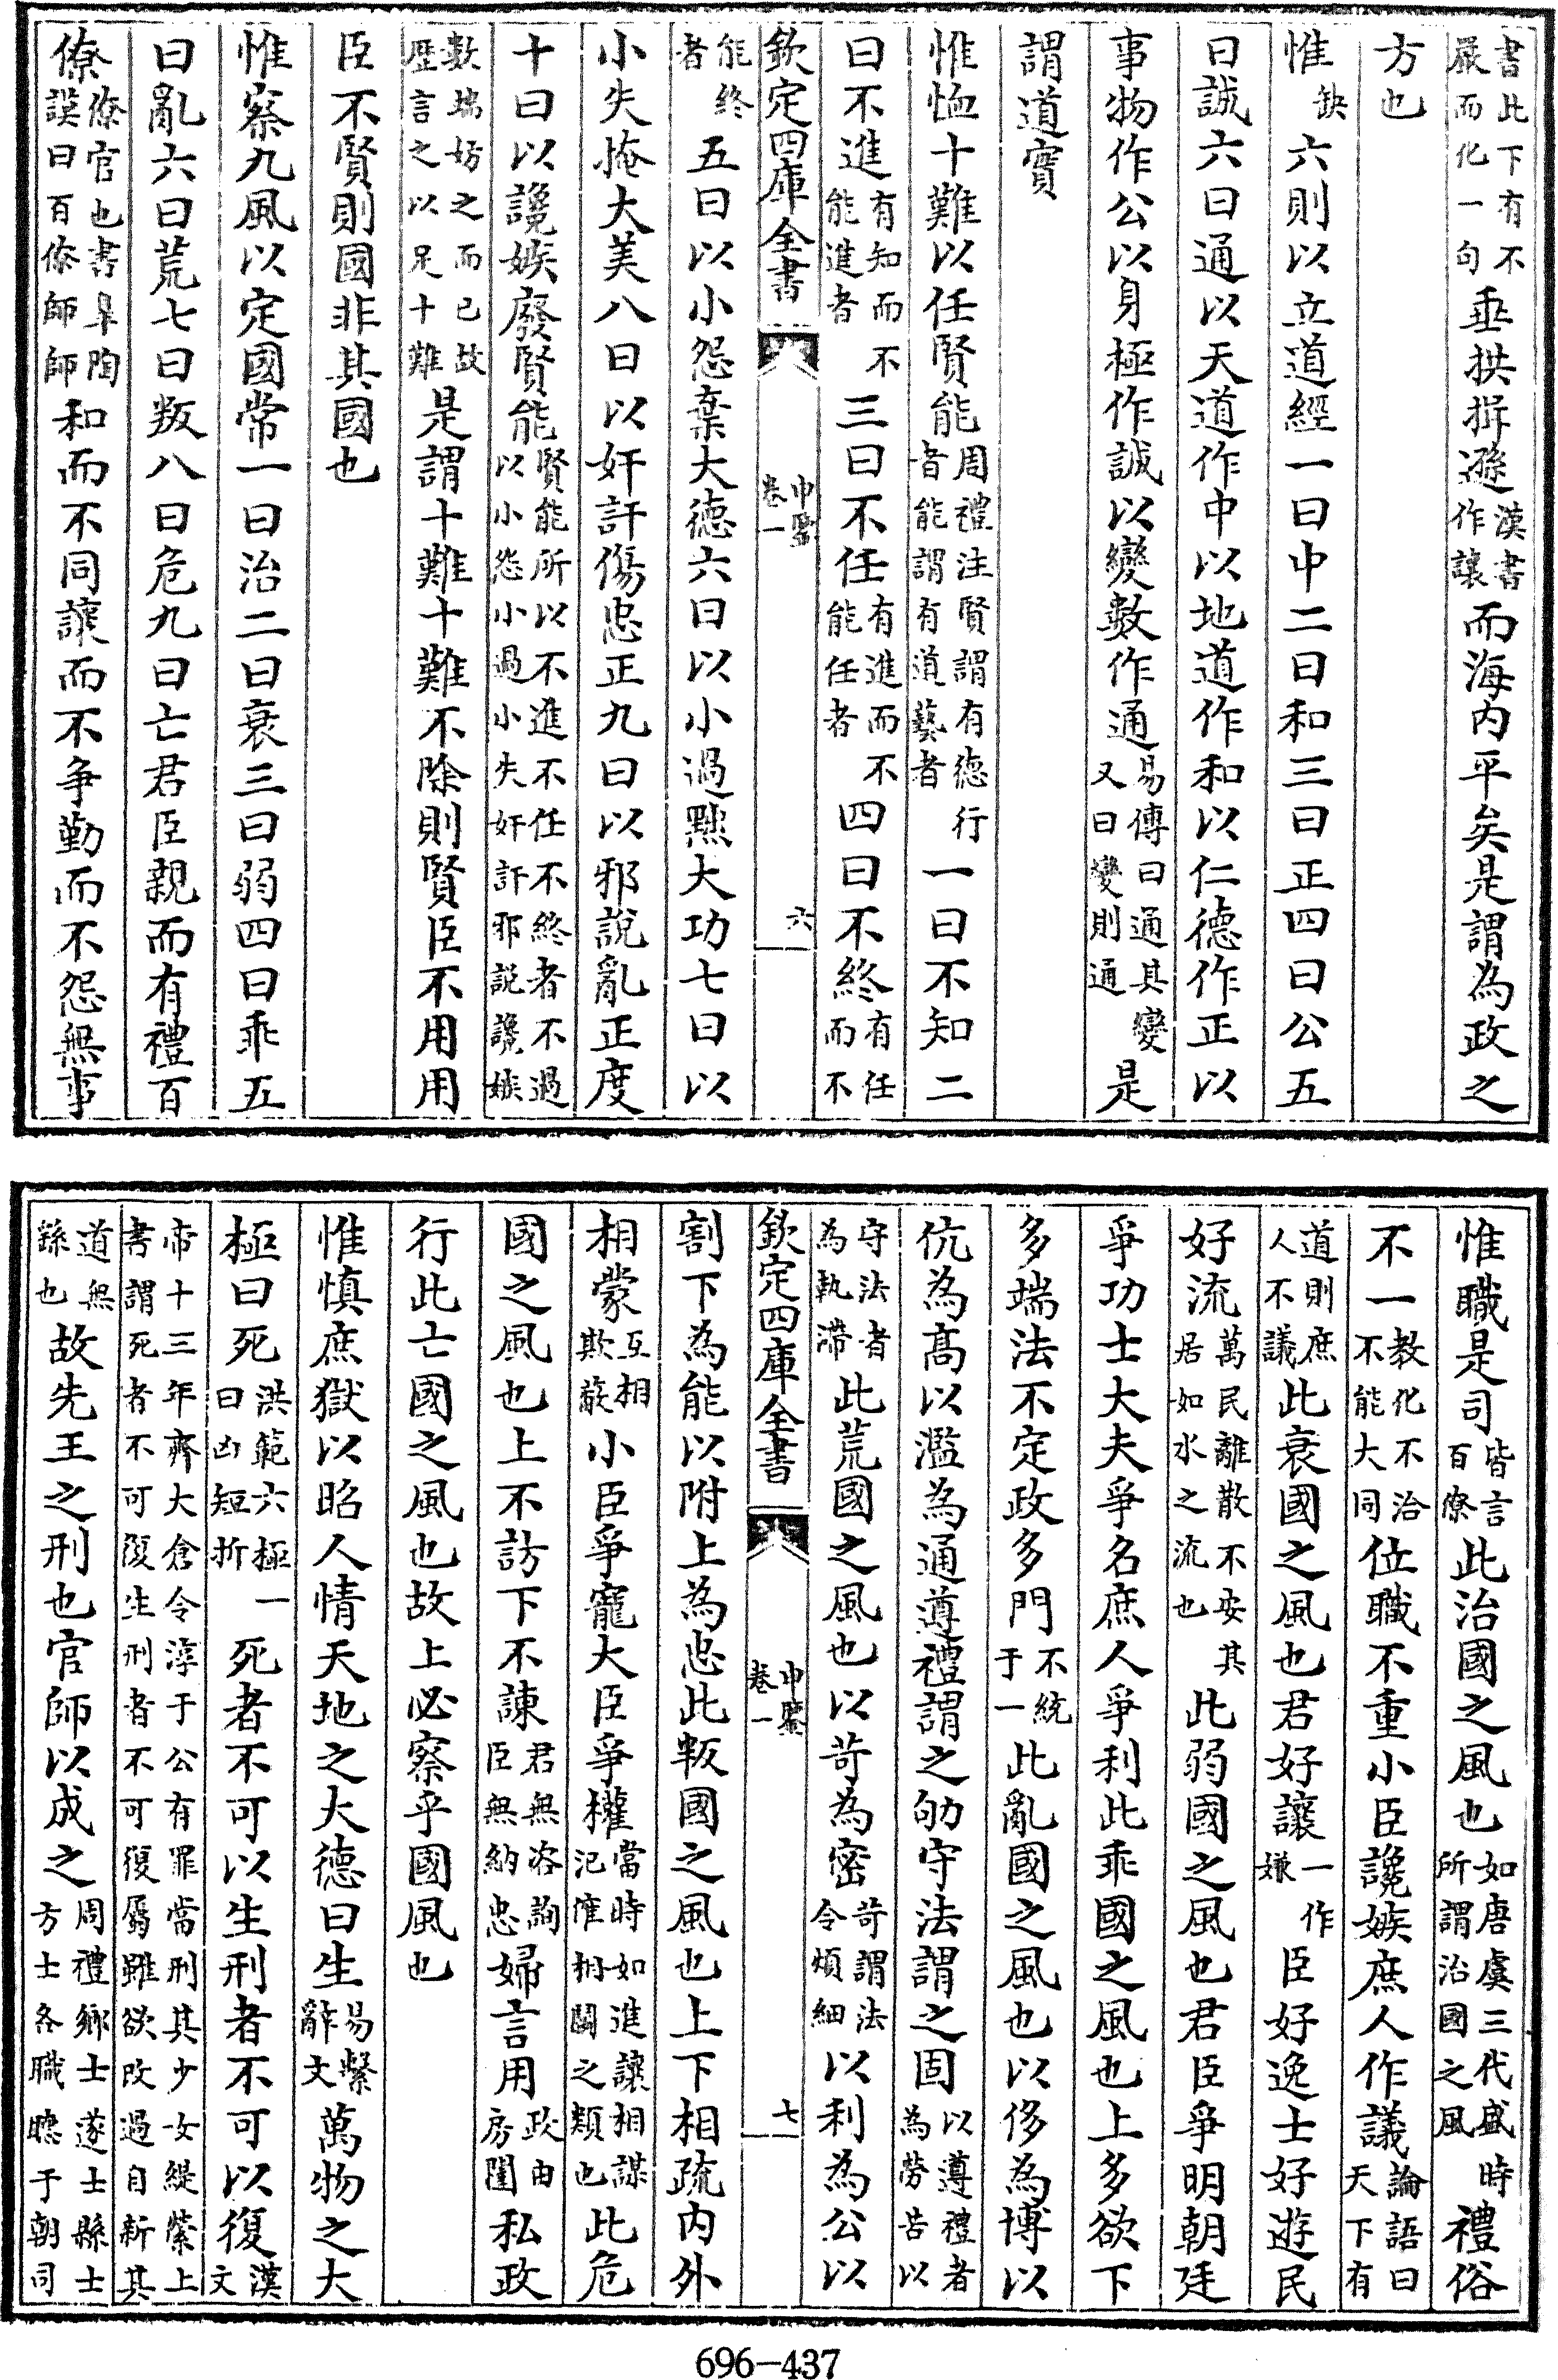 書此下有不嚴而化一句垂拱揖遜漢書作讓而海内平矣是謂為政之
方也
惟缺六則以立道經一曰中二曰和三曰正四曰公五
曰誠六曰通以天道作中以地道作和以仁德作正以
事物作公以身極作誠以變數作通易傳曰通其變又曰變則通是
謂道實
惟恤十難以任賢能周禮注賢謂有德行者能謂有道藝者一曰不知二
曰不進有知而不能進者三曰不任有進而不能任者四曰不終有任而不
欽定四庫全書 申鑒卷一 六
能終者五曰以小怨棄大德六曰以小過黜大功七曰以
小失掩大美八曰以奸訐傷忠正九曰以邪說亂正度
十曰以讒嫉廢賢能賢能所以不進不任不終者不過以小怨小過小失奸訐邪説讒嫉
數端妨之而已故歴言之以足十難是謂十難十難不除則賢臣不用用
臣不賢則國非其國也
惟察九風以定國常一曰治二曰衰三曰弱四曰乖五
曰亂六曰荒七曰叛八曰危九曰亡君臣親而有禮百
僚僚官也書臯陶謨曰百僚師師師和而不同讓而不争勤而不怨無事
惟職是司皆言百僚此治國之風也如唐虞三代盛時所謂治國之風禮俗
不一教化不洽不能大同位職不重小臣讒嫉庶人作議論語曰天下有
道則庶人不議此衰國之風也君好讓一作嫌臣好逸士好遊民
好流萬民離散不安其居如水之流也此弱國之風也君臣爭明朝廷
爭功士大夫爭名庶人爭利此乖國之風也上多欲下
多端法不定政多門不統于一此亂國之風也以侈為博以
伉為高以濫為通遵禮謂之劬守法謂之固以遵禮者為勞苦以
守法者為執滯此荒國之風也以苛為密苛謂法令煩細以利為公以
欽定四庫全書 申鑒卷一 七
割下為能以附上為忠此叛國之風也上下相疏内外
相蒙互相欺蔽小臣爭寵大臣爭權當時如進讓相謀氾傕相鬭之類也此危
國之風也上不訪下不諫君無咨詢臣無納忠婦言用政由房闥私政
行此亡國之風也故上必察乎國風也
惟慎庶獄以昭人情天地之大德曰生易繫辭文萬物之大
極曰死洪範六極一曰凶短折死者不可以生刑者不可以復漢文
帝十三年齊大倉令淳于公有罪當刑其少女緹縈上書謂死者不可復生刑者不可復屬雖欲改過自新其
道無繇也故先王之刑也官師以成之周禮鄉士遂士縣士方士各職聽于朝司
696-437